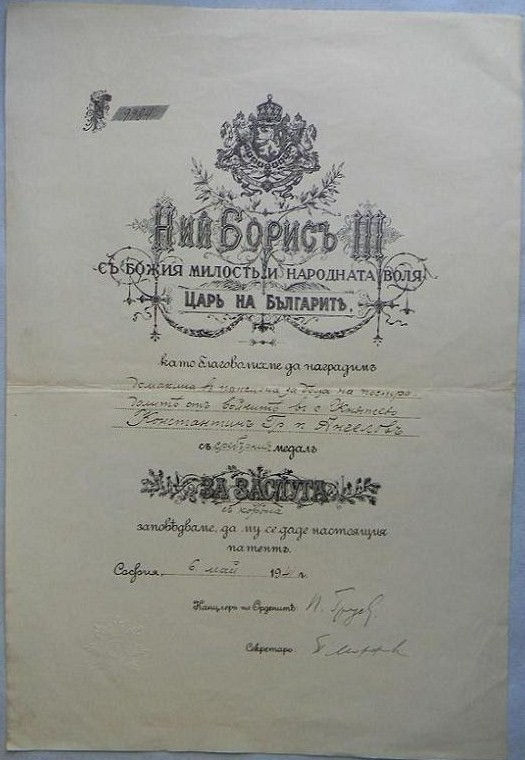 Ний Борисъ III
СЪ БОЖИЯ МИЛОСТЬ И НАРОДНАТА ВОЛЯ
ЦАРЬ НА БЪЛГАРИТѢ,
като благоволихме да наградимъ
домакина въ пансиона за деца на пострада
лите отъ войните въ с. Княжево
Константинъ Гр. п. Ангеловъ
съ сребърния медалъ
ЗА ЗАСЛУГА
съ корона
заповѣдваме, да му се даде настоящия
патентъ.
София, 6 май 194 г.
Канцлеръ на Орденитѣ:
Секретаръ: